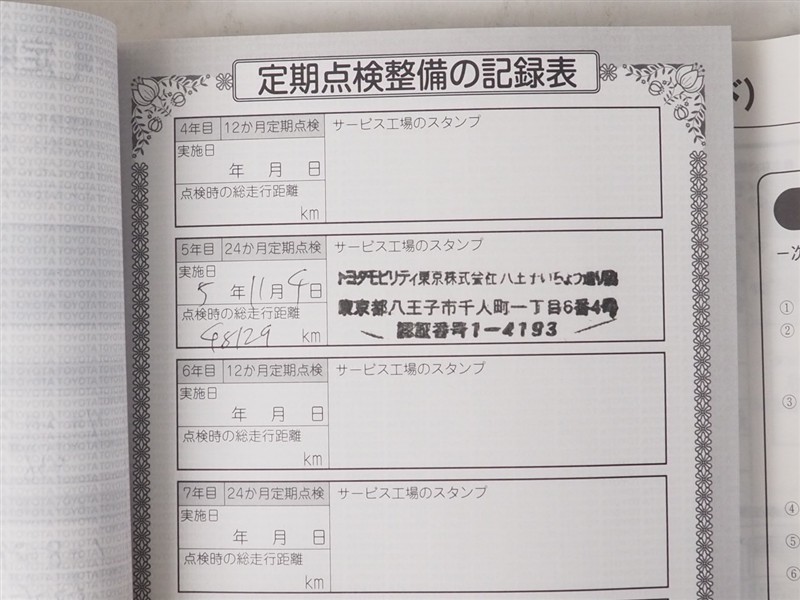 定期点検整備の記録表
4年目 12か月定期点検 サービス工場のスタンプ
実施日
年 月 日
点検時の総走行距離
km
5年目 24か月定期点検 サービス工場のスタンプ
実施日
5 年 11 月 4 日
点検時の総走行距離
48129 km
トヨタモビリティ東京株式会社 八王子いちょう通り店
東京都八王子市千人町一丁目6番4号
認証番号1-4193
6年目 12か月定期点検 サービス工場のスタンプ
実施日
年 月 日
点検時の総走行距離
km
7年目 24か月定期点検 サービス工場のスタンプ
実施日
年 月 日
点検時の総走行距離
km
ド)
一次
①
②
③
④
⑤
⑥